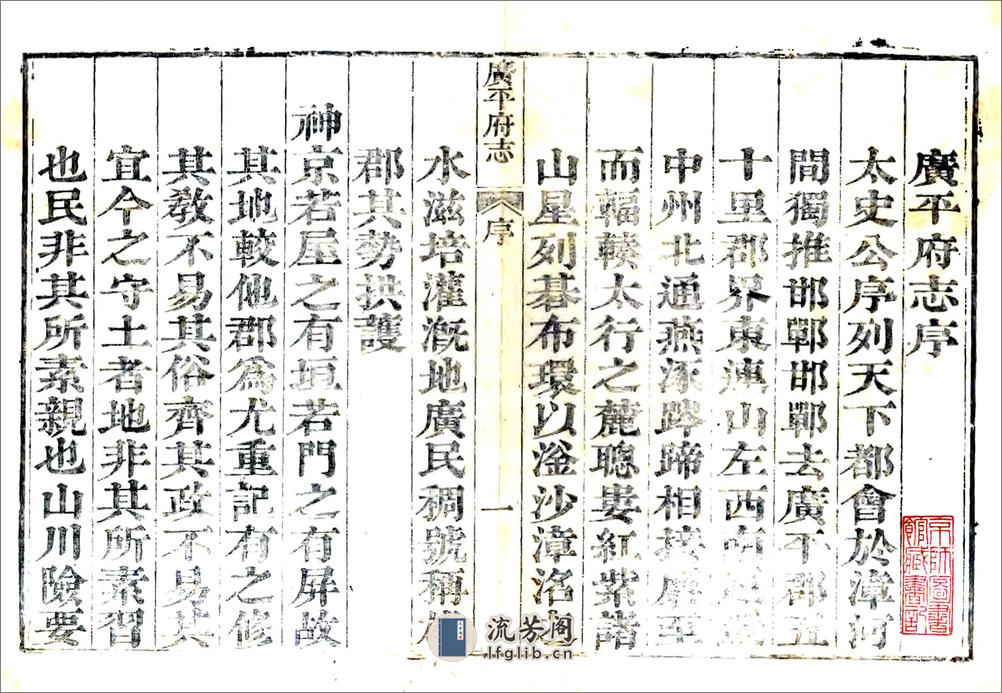 廣平府志序
太史公序列天下都會於漳河
間獨推邯鄲邯鄲去廣平郡五
十里郡界東連山左西
中州北通燕涿蹄相接
而輻輳太行之麓聰婁紅紫諸
山星列碁布環以滏沙漳洺
廣平府志
序
一
水滋培灌漑地廣民稠號稱
郡其勢拱護
神京若屋之有垣若門之有屏故
其地較他郡爲尤重記有之修
其敎不易其俗齊其政不易其
宜今之守土者地非其所素習
也民非其所素親也山川險要
京師圖書
館藏書記
流芳阁
lfglib.cn